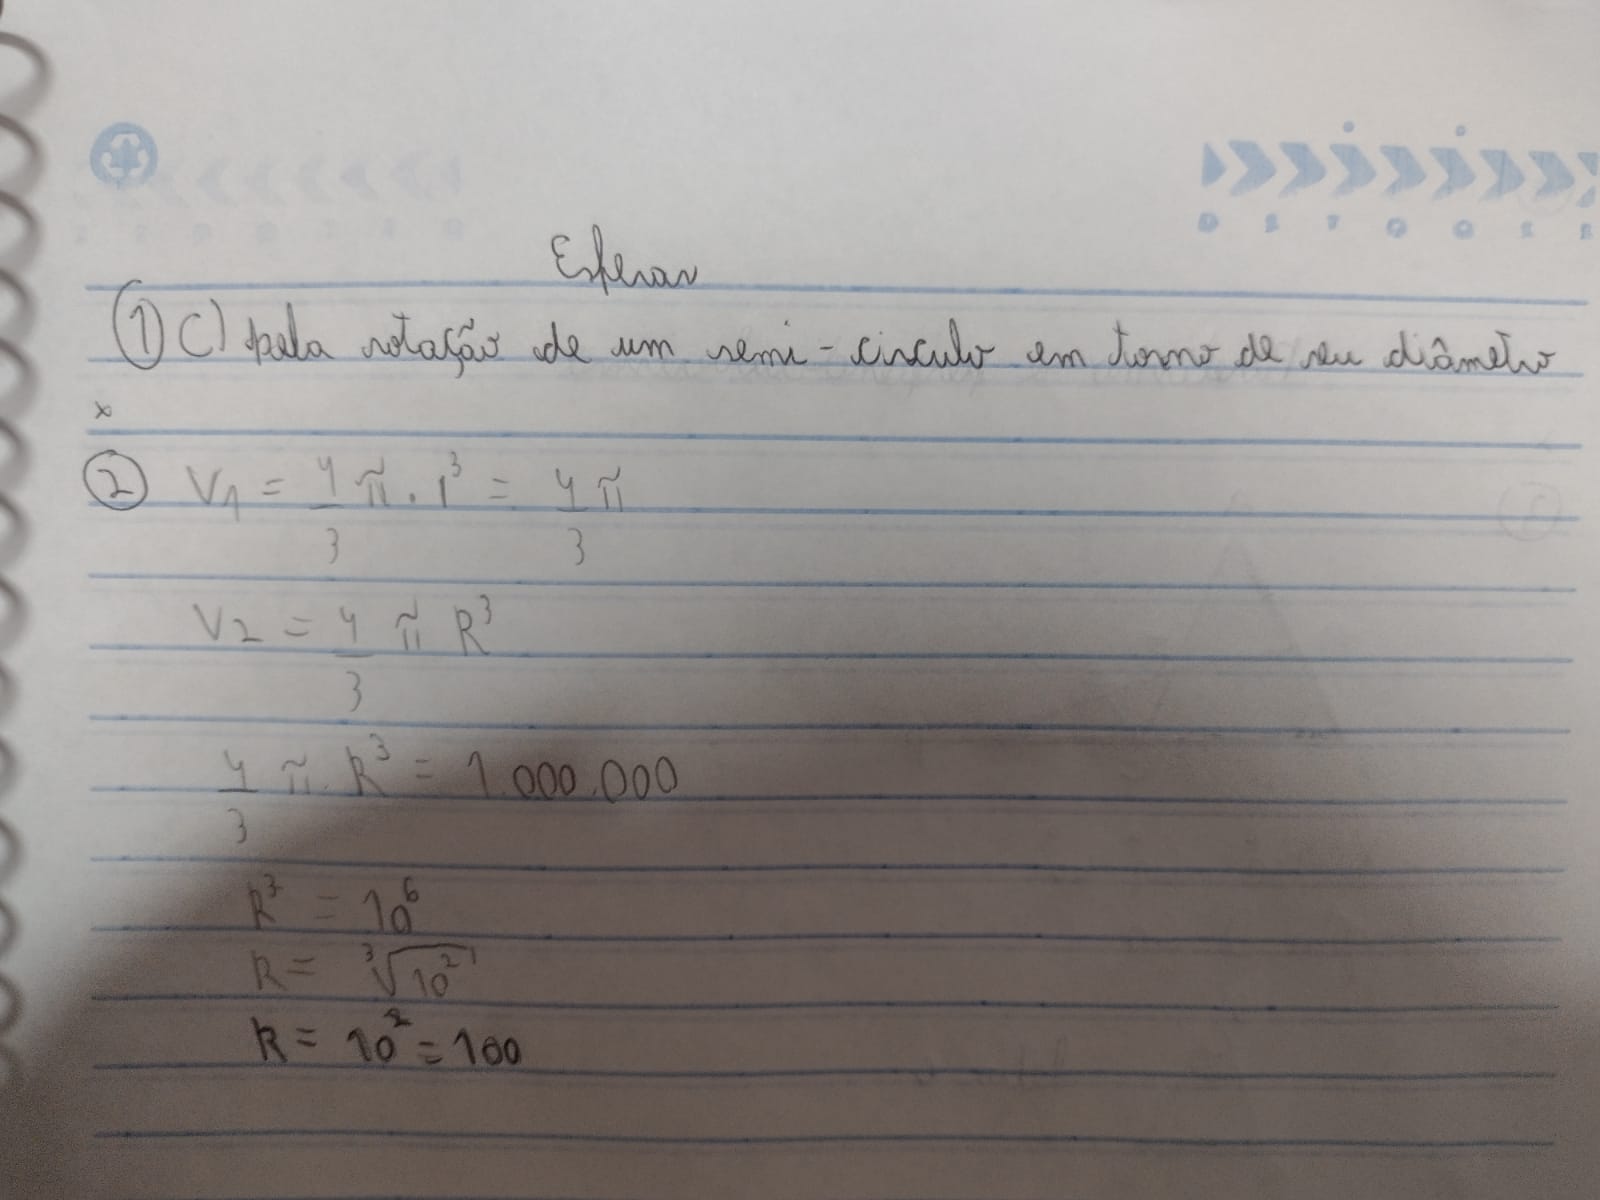 Esferas
① C) pela rotação de um semi-circulo em torno de seu diâmetro
x
② V1 = 4/3 π . 1³ = 4π/3
V2 = 4/3 π R³
4/3 π . R³ = 1.000.000
R³ = 10⁶
R = ³√10²
R = 10² = 100